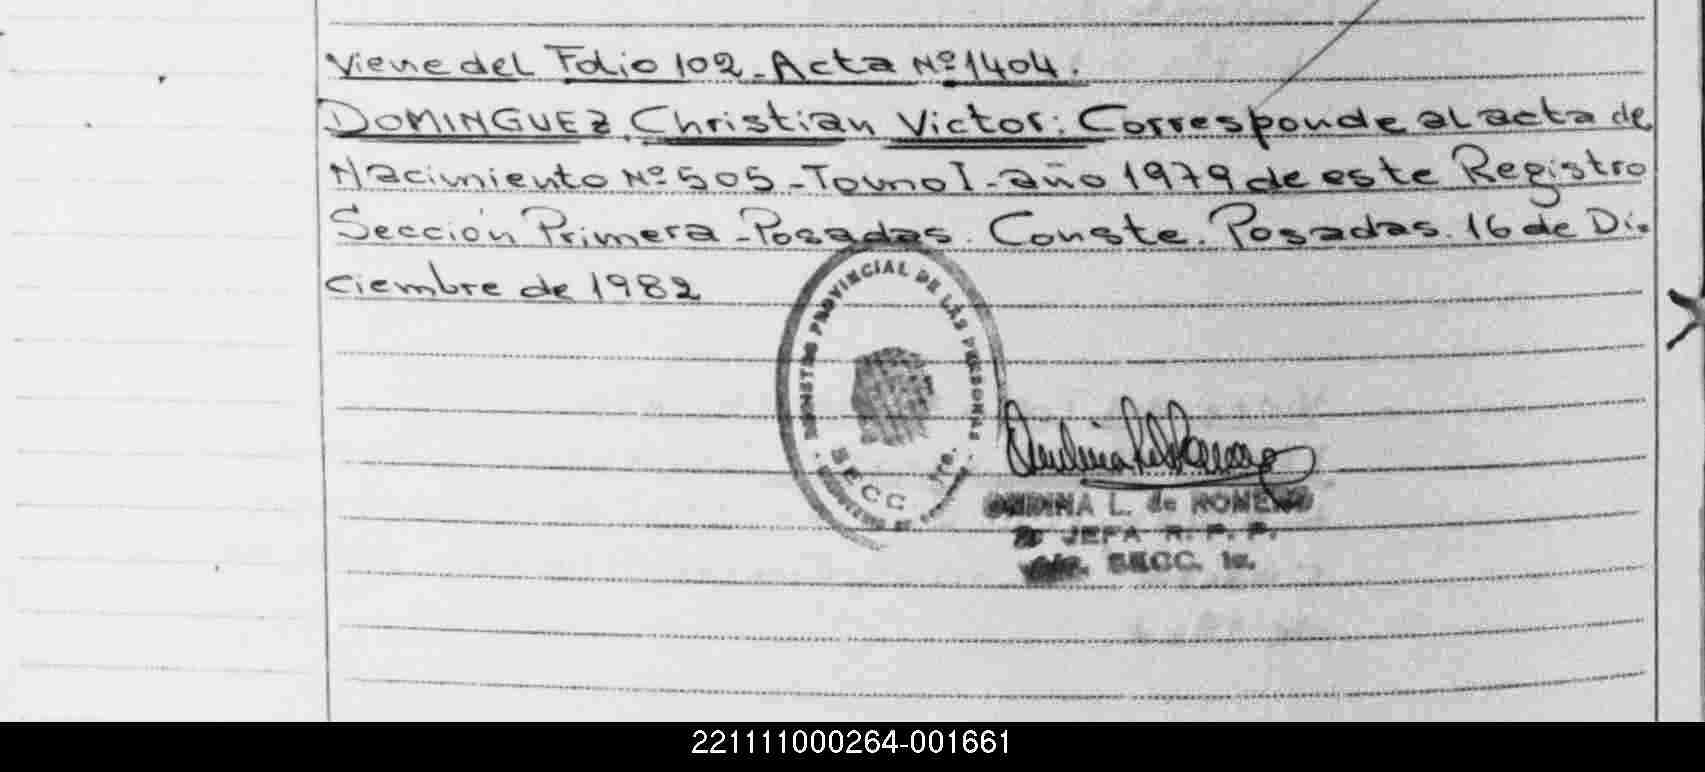 Viene del Folio 102 - Acta Nº 1404.
DOMINGUEZ, Christian Victor: Corresponde al acta de
Nacimiento Nº 505 - Tomo I - año 1979 de este Registro
Sección Primera - Posadas. Conste. Posadas. 16 de Di-
ciembre de 1982
REGISTRO PROVINCIAL DE LAS PERSONAS
SECC. 1ra.
L. de ROMERO
JEFA R. P. P.
SECC. 1a.
221111000264-001661